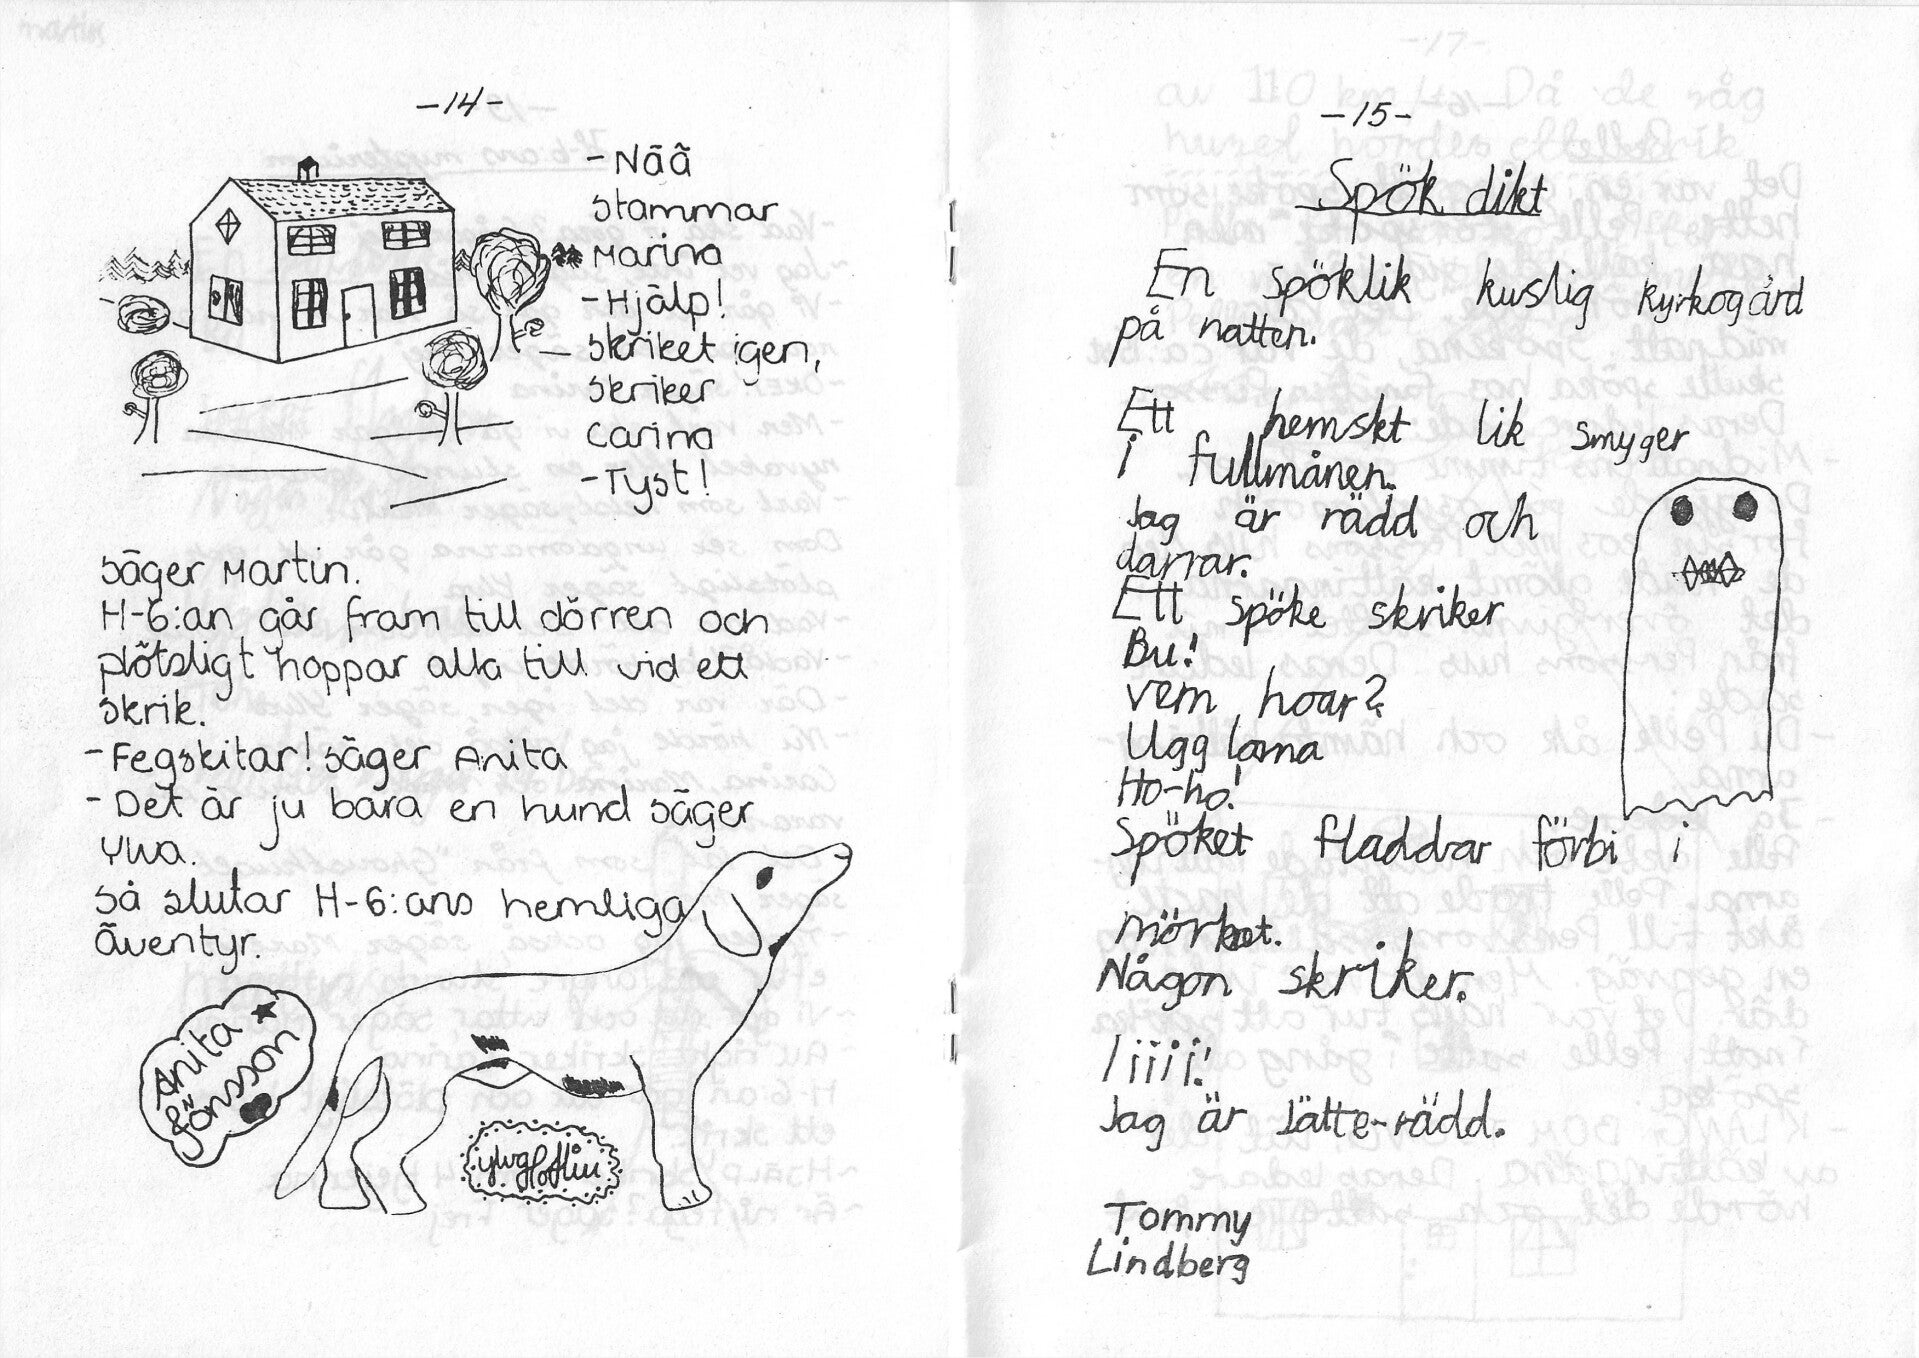 -14-
-Nää
stammar
Marina
-Hjälp!
skriket igen,
skriker
Carina
-Tyst!
säger Martin.
H-6:an går fram till dörren och
plötsligt hoppar alla till vid ett
skrik.
-Fegskitar! säger Anita
-Det är ju bara en hund säger
Ylva.
så slutar H-6:ans hemliga
äventyr.
Anita
Jönsson
-15-
Spök dikt
En spöklik kuslig kyrkogård
på natten.
Ett hemskt lik smyger
i fullmånen.
Jag är rädd och
darrar.
Ett spöke skriker
Bu!
vem hoar?
Ugglorna
Ho-ho!
Spöket fladdrar förbi i
mörket.
Någon skriker.
Iiiii!
Jag är Jätte-rädd.
Tommy
Lindberg